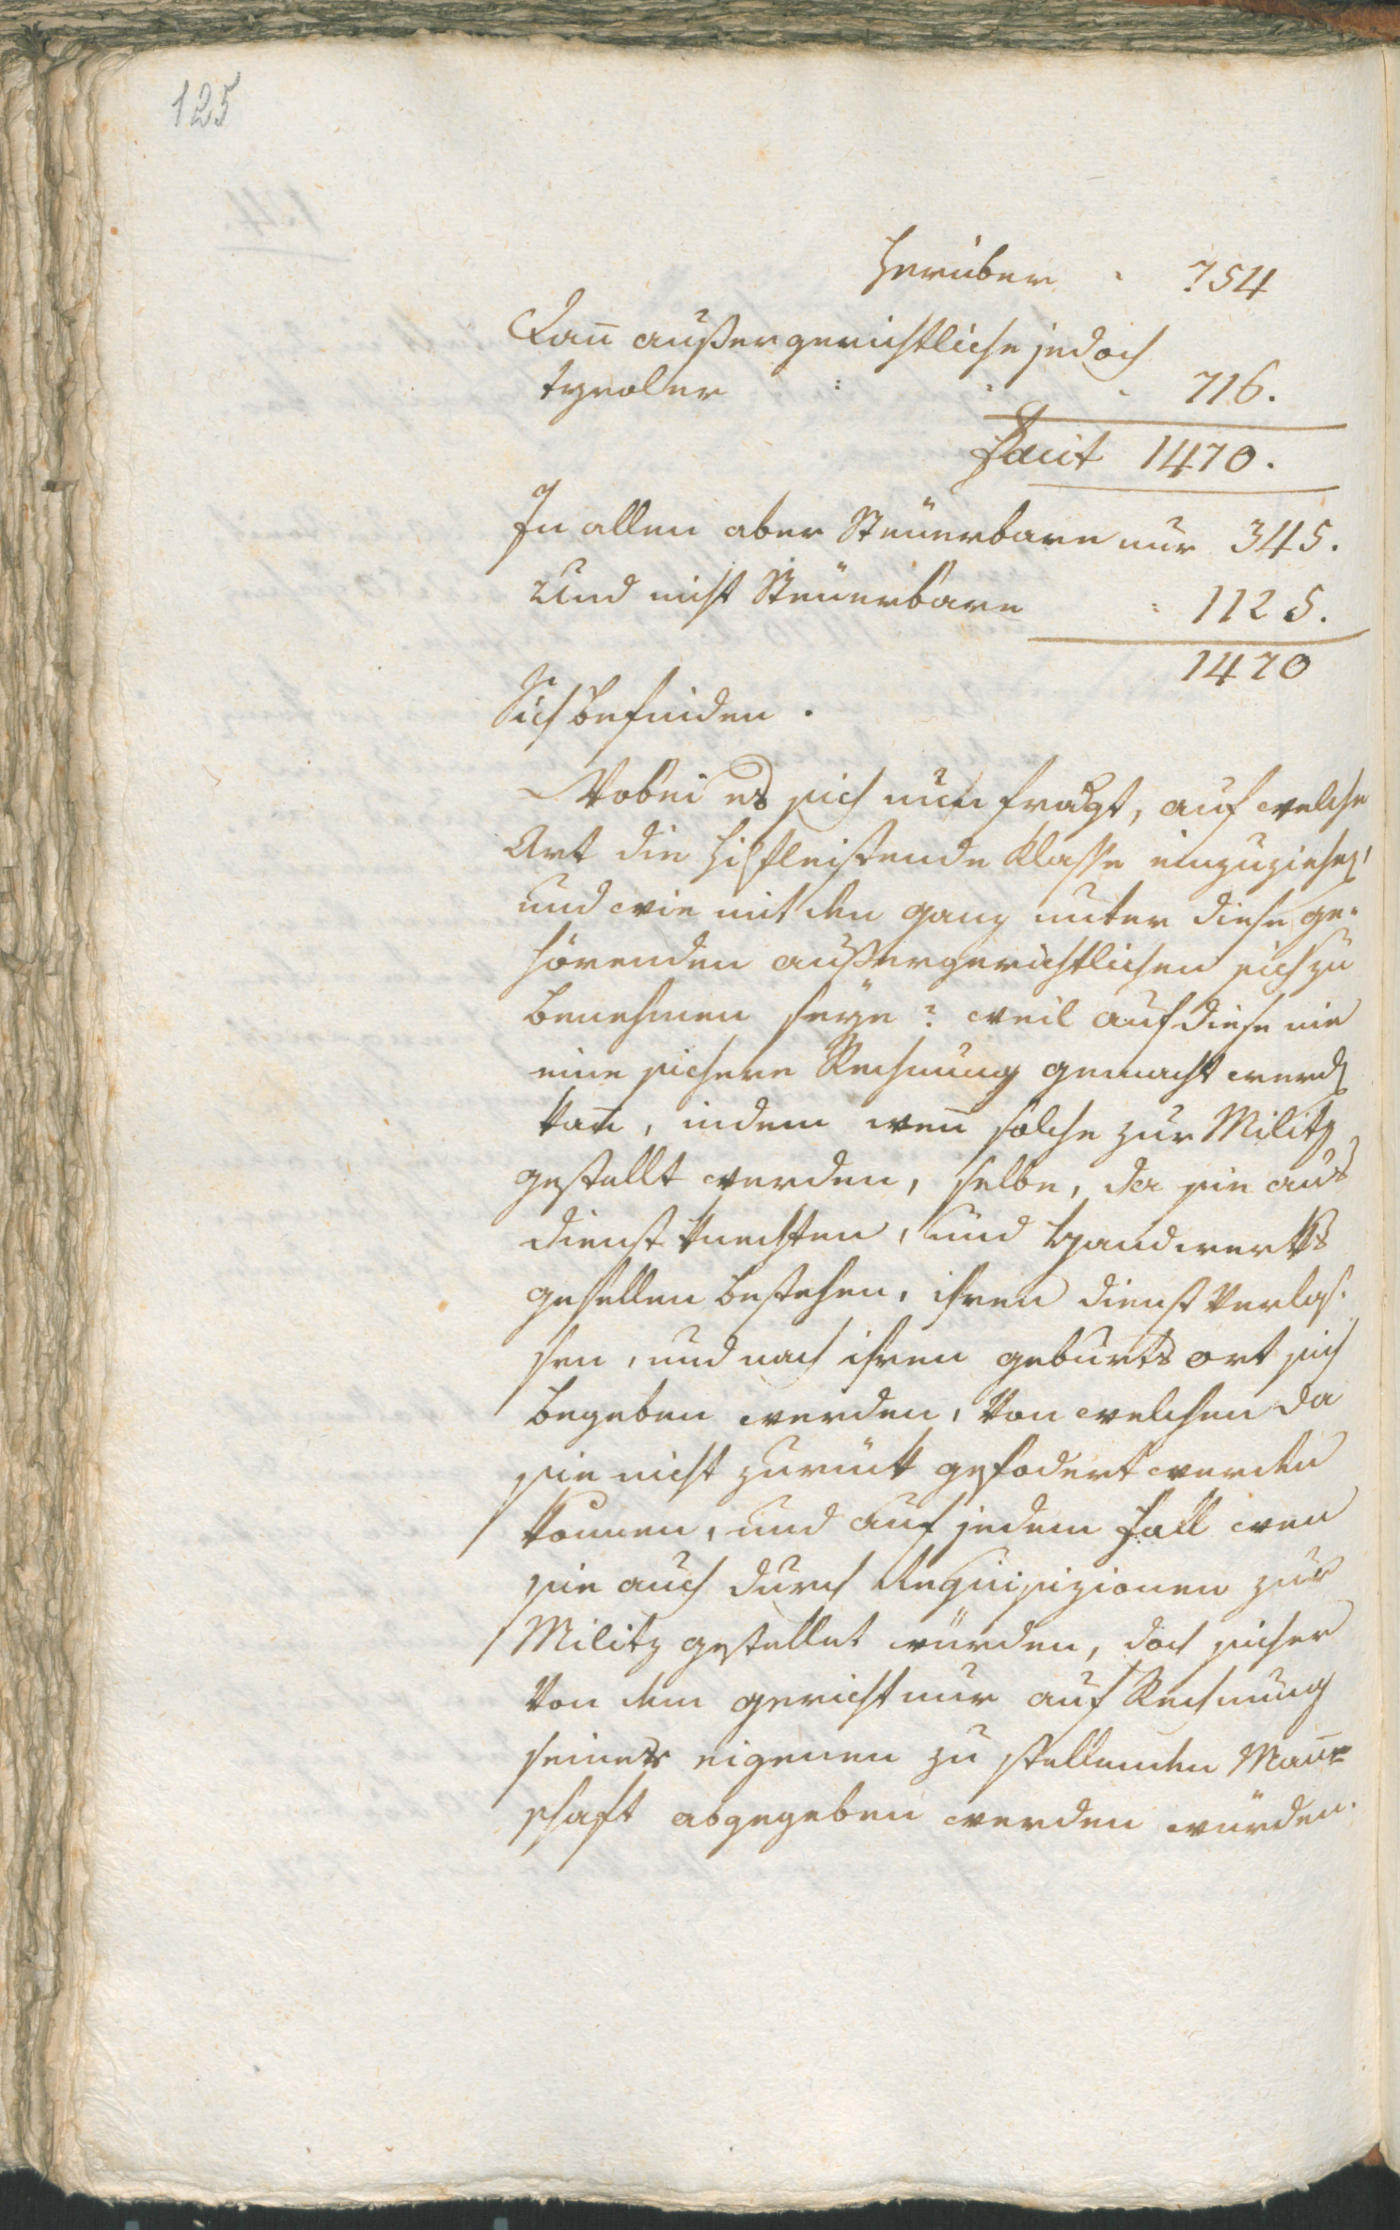 125
Herüber - 754
Dañ außergerichtliche jedoch
tyroler : - - 716.
Facit 1470.
In allen aber Steuerbare nur 345.
Und nicht Steuerbare : 1125.
1470
Sich befinden.
Wobei es sich nun fragt, auf welche
Art die hilfleistende Klasse einzuziehen,
und wie mit den ganz unter diese ge-
hörenden außergerichtlichen sich zu
benehmen seye? weil auf diese nie
eine sichere Rechnung gemacht werden
kañ, indem weñ solche zur Militz
gestellt werden, selbe, da sie aus
dienst knechten, und Handwerks
gesellen bestehen, ihren dienst verlas-
sen, und nach ihren geburts ort sich
begeben werden, von welchen da
sie nicht zurück gefodert werden
können, und auf jedem Fall wen
sie auch durch Requisizionen zur
Militz gestellet würden, doch sicher
von dem gericht nur auf Rechnung
seiner eigenen zu stellenden Mañ-
schaft abgegeben werden würden.